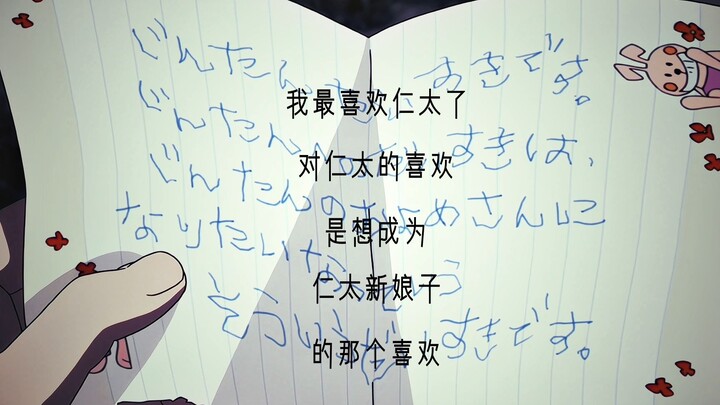 じんたん だいすきです。
じんたん のだいすきは、
じんたんのおよめさんに
なりたいなっていう
そういう すきです。
我最喜欢仁太了
对仁太的喜欢
是想成为
仁太新娘子
的那个喜欢